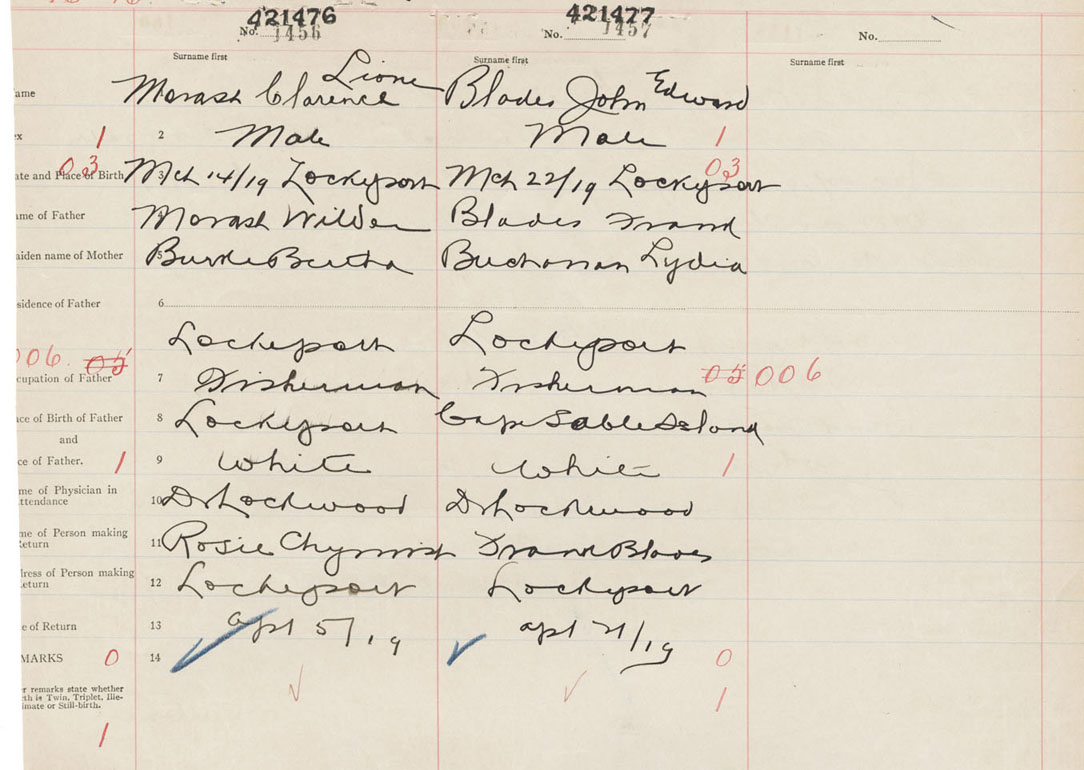 421476 421477
No. 1456 No. 1457 No.
Surname first Surname first Surname first
ame Morash Clarence Lione Blades John Edward
x 1 2 Male Male 1
03 03
ate and Place of Birth 3 Mch 14/19 Lockeport Mch 22/19 Lockeport
ame of Father Morash Wilden Blades Frank
aiden name of Mother 5 Burke Bertha Buchanan Lydia
sidence of Father 6
Lockeport Lockeport
006 05 05 006
cupation of Father 7 Fisherman Fisherman
ace of Birth of Father 8 Lockeport Cape Sable Island
and
ce of Father. 1 9 White White 1
me of Physician in
ttendance 10 Dr Lockwood Dr Lockwood
me of Person making
eturn 11 Rosie Chymist Frank Blades
dress of Person making
eturn 12 Lockeport Lockeport
e of Return 13 apl 5/19 apl 21/19
MARKS 0 14 0
r remarks state whether
th is Twin, Triplet, Ille-
imate or Still-birth. 1
1